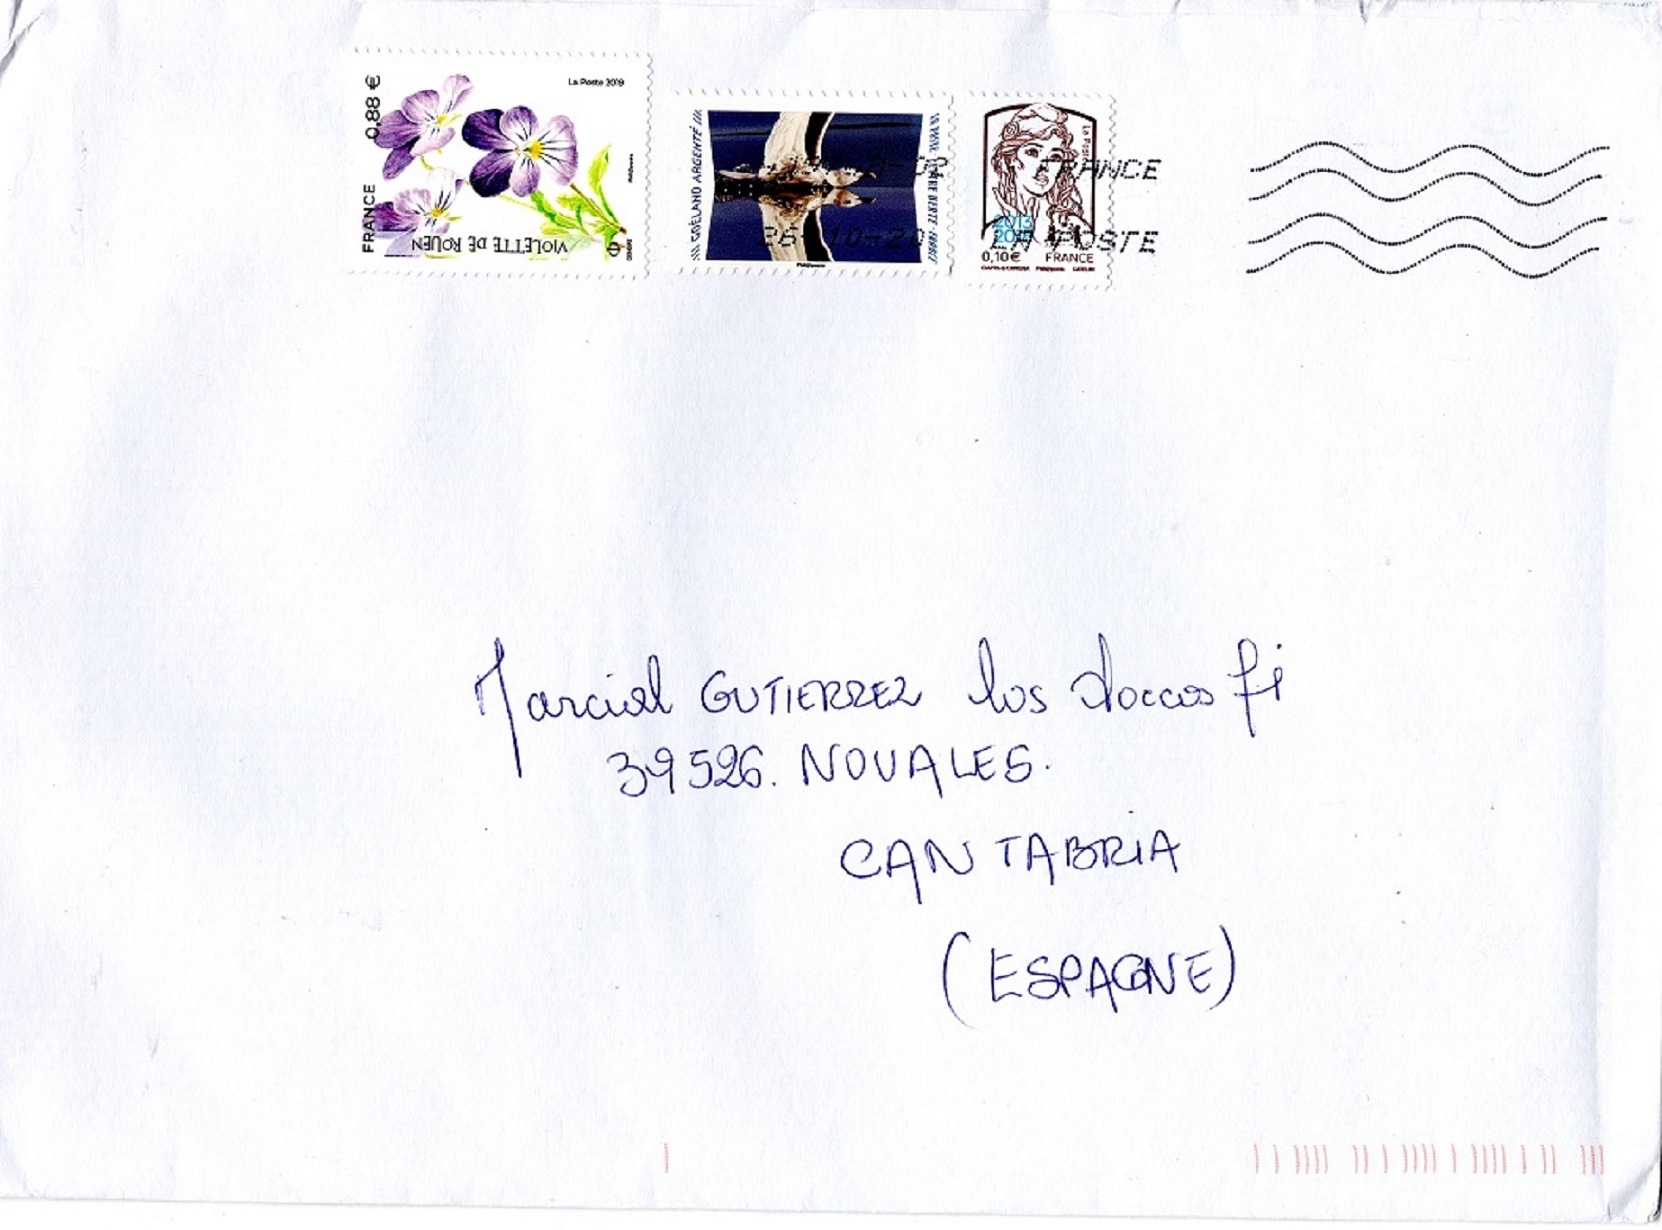 La Poste 2019
0,88 €
FRANCE
VIOLETTE DE ROUEN
GOËLAND ARGENTÉ
La Poste
2013
0,10€ FRANCE
FRANCE
26 10-20
LA POSTE
Marcial GUTIERREZ los
39526. NOVALES.
CANTABRIA
(ESPAGNE)